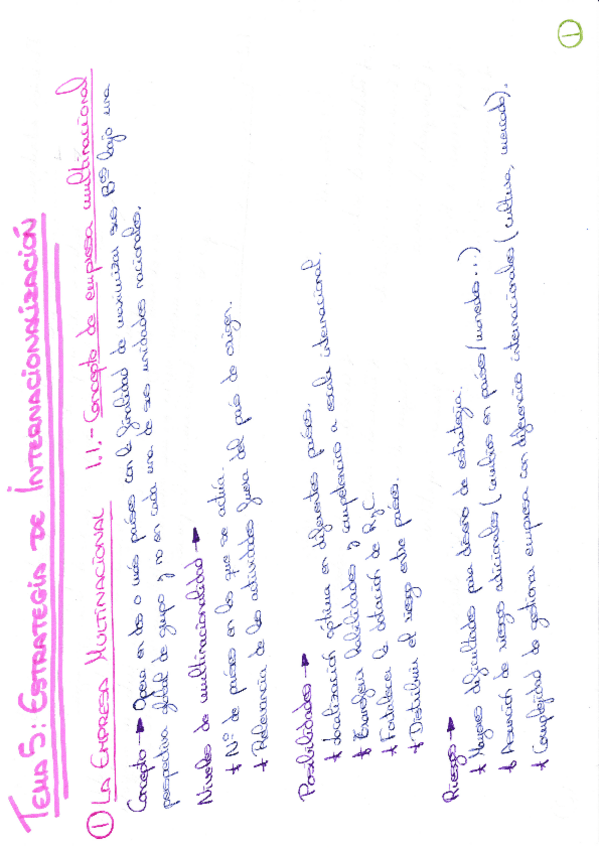 ①
TEMA 5: ESTRATEGIA DE INTERNACIONALIZACIÓN
① LA EMPRESA MULTINACIONAL 1.1.- Concepto de empresa multinacional
Concepto → Opera en dos o más países con la finalidad de maximizar sus Bºs bajo una
perspectiva global de grupo y no en cada una de sus unidades nacionales.
Niveles de multinacionalidad →
* Nº de países en los que se actúa.
* Relevancia de las actividades fuera del país de origen.
Posibilidades →
* Localización óptima en diferentes países.
* Transferir habilidades y competencias a escala internacional.
* Fortalecer la dotación de RyC.
* Distribuir el riesgo entre países.
Riesgos →
* Mayores dificultades para diseño de estrategia.
* Asunción de riesgos adicionales (cambios en países/monedas...)
* Complejidad de gestionar empresa con diferencias internacionales (cultura, mercado).